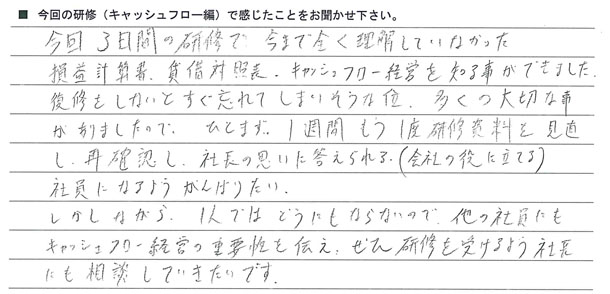 ■ 今回の研修（キャッシュフロー編）で感じたことをお聞かせ下さい。
今回 3日間の研修で 今まで全く理解していなかった
損益計算書、貸借対照表、キャッシュフロー経営を知る事ができました。
復修をしないとすぐ忘れてしまいそうな位、多くの大切な事
がありましたので、ひとまず、1週間もう1度研修資料を見直
し、再確認し、社長の思いに答えられる、(会社の役に立てる)
社員になるようがんばりたい。
しかしながら、1人ではどうにもならないので、他の社員にも
キャッシュフロー経営の重要性を伝え、ぜひ研修を受けるよう社長
にも相談していきたいです。